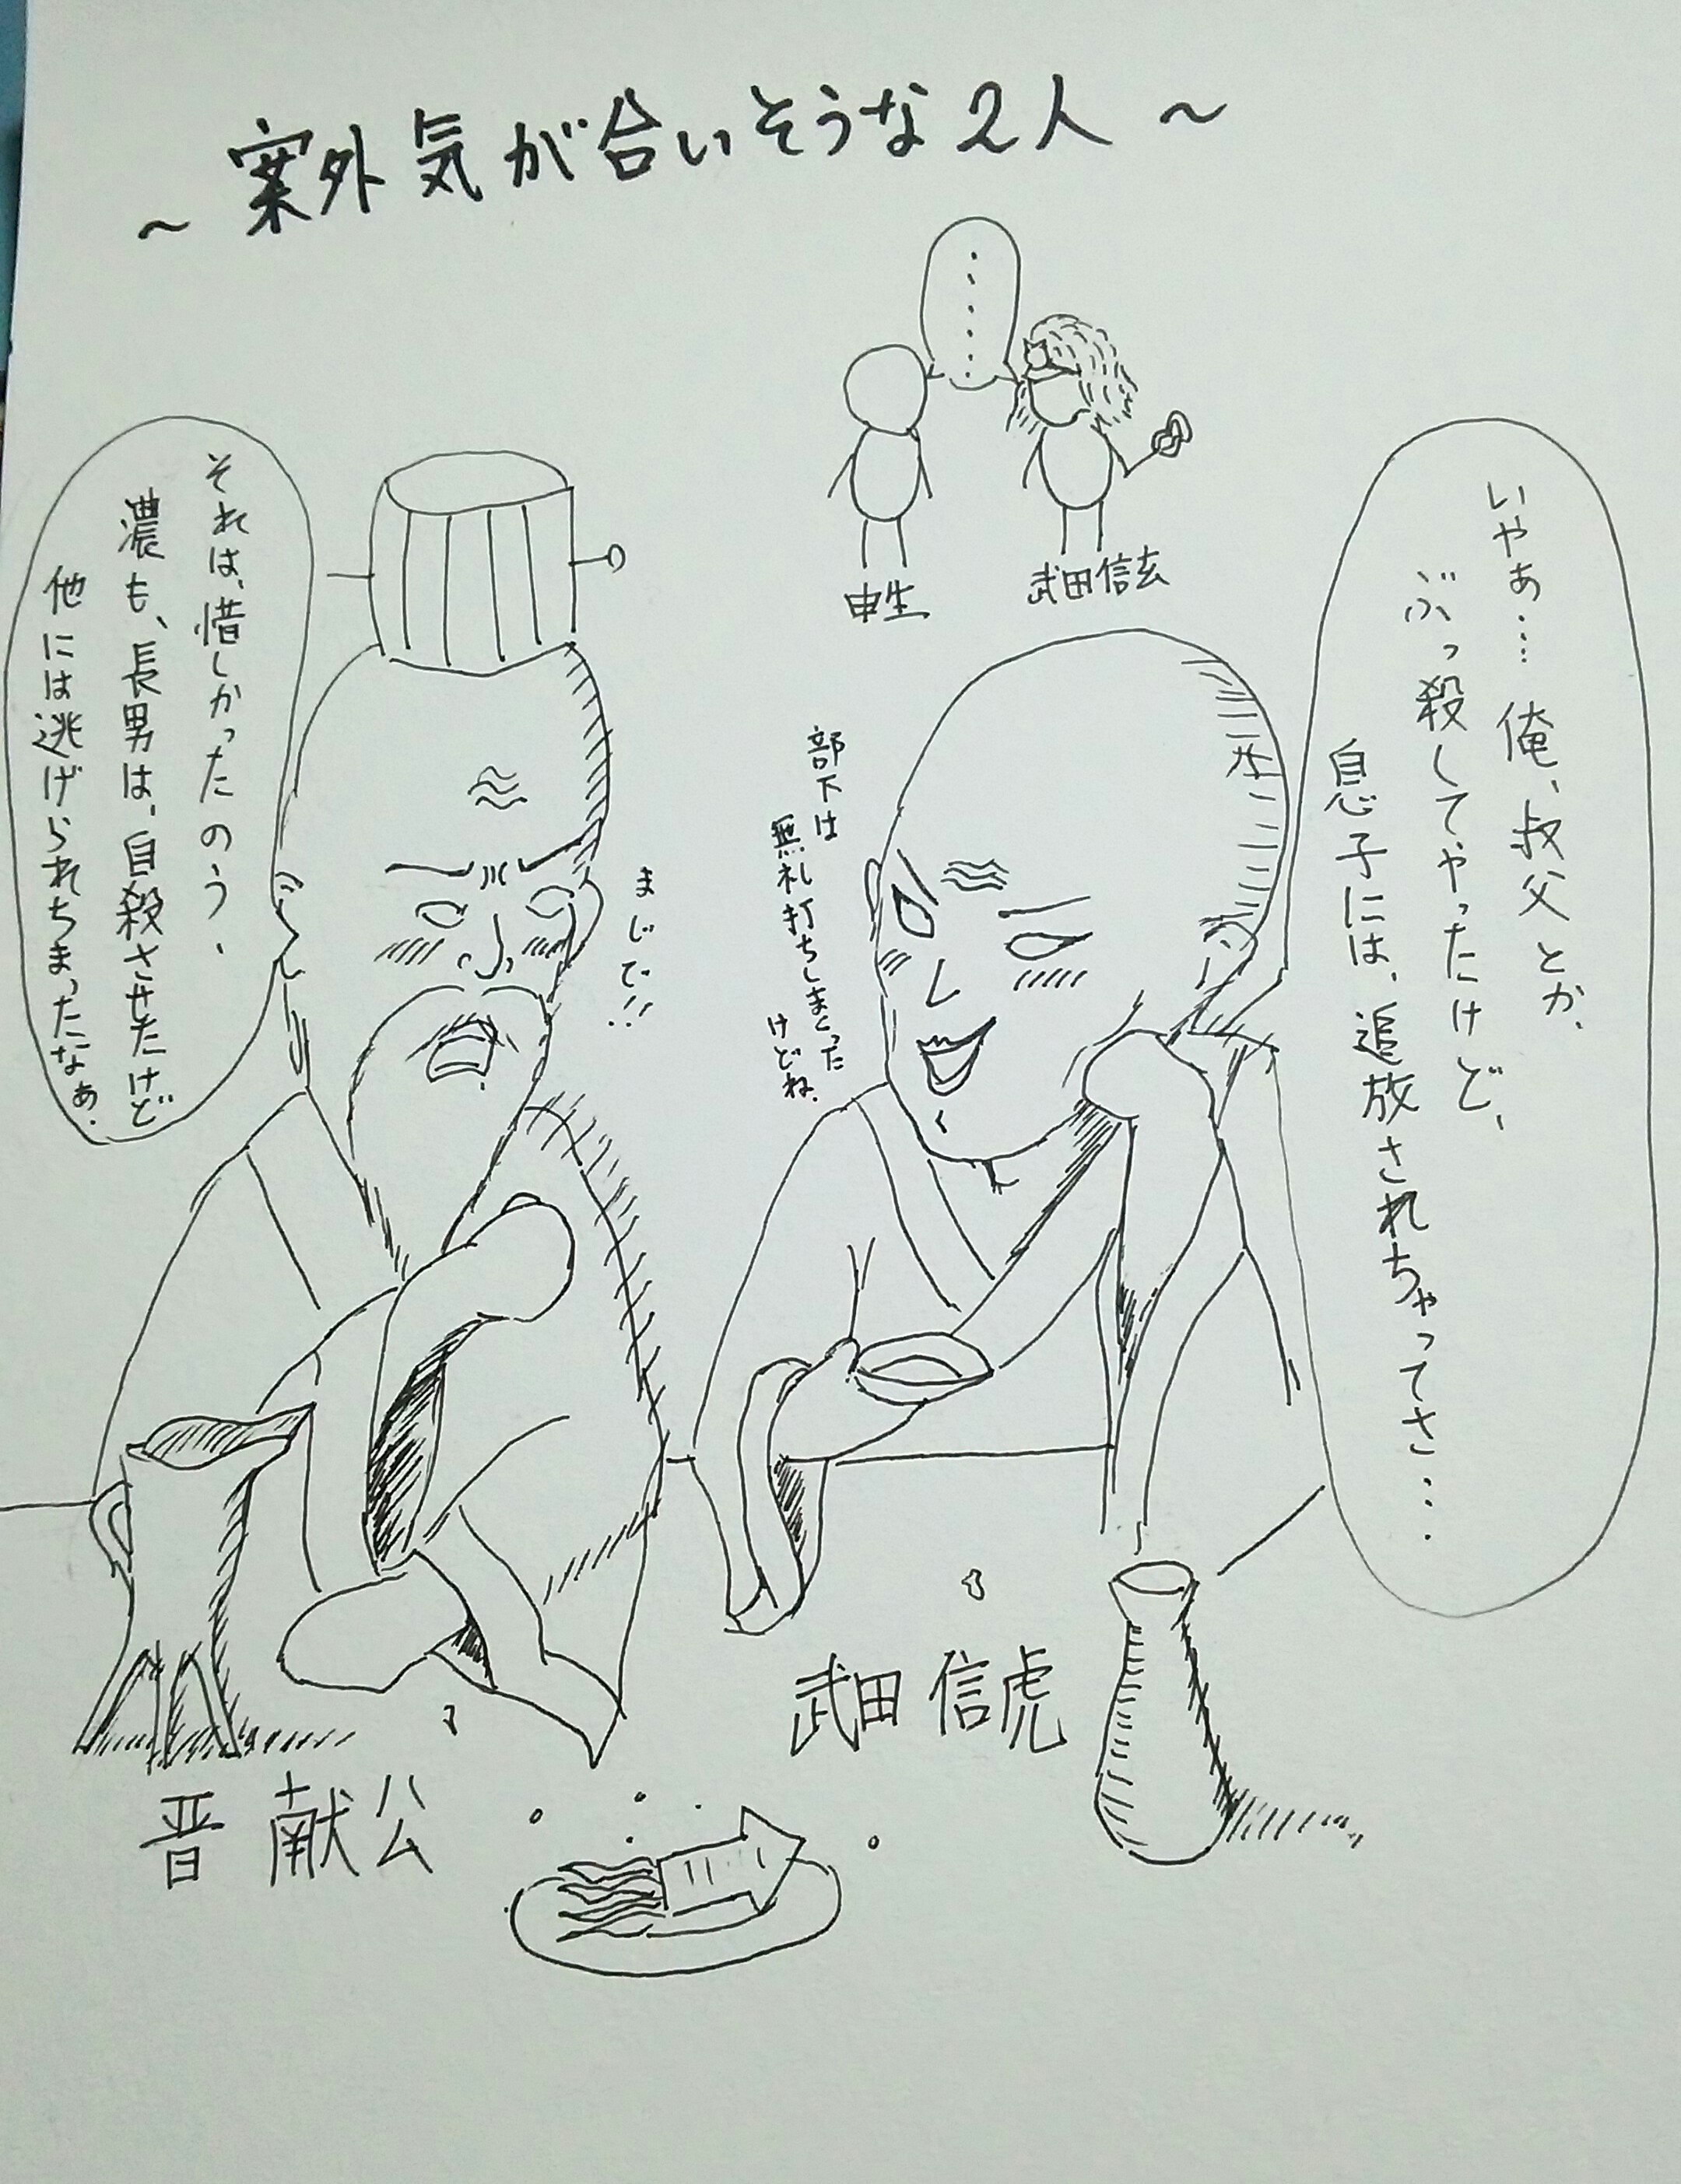 ～案外気が合いそうな2人～
・・・・・・
申生
武田信玄
いやぁ……俺、叔父とか、
ぶっ殺してやったけど、
息子には、追放されちゃってさ…
部下は
無礼打ちしまくった
けどね、
まじで!!
それは、惜しかったのう、
濃も、長男は、自殺させたけど
他には逃げられちまったなぁ.
武田信虎
晋献公